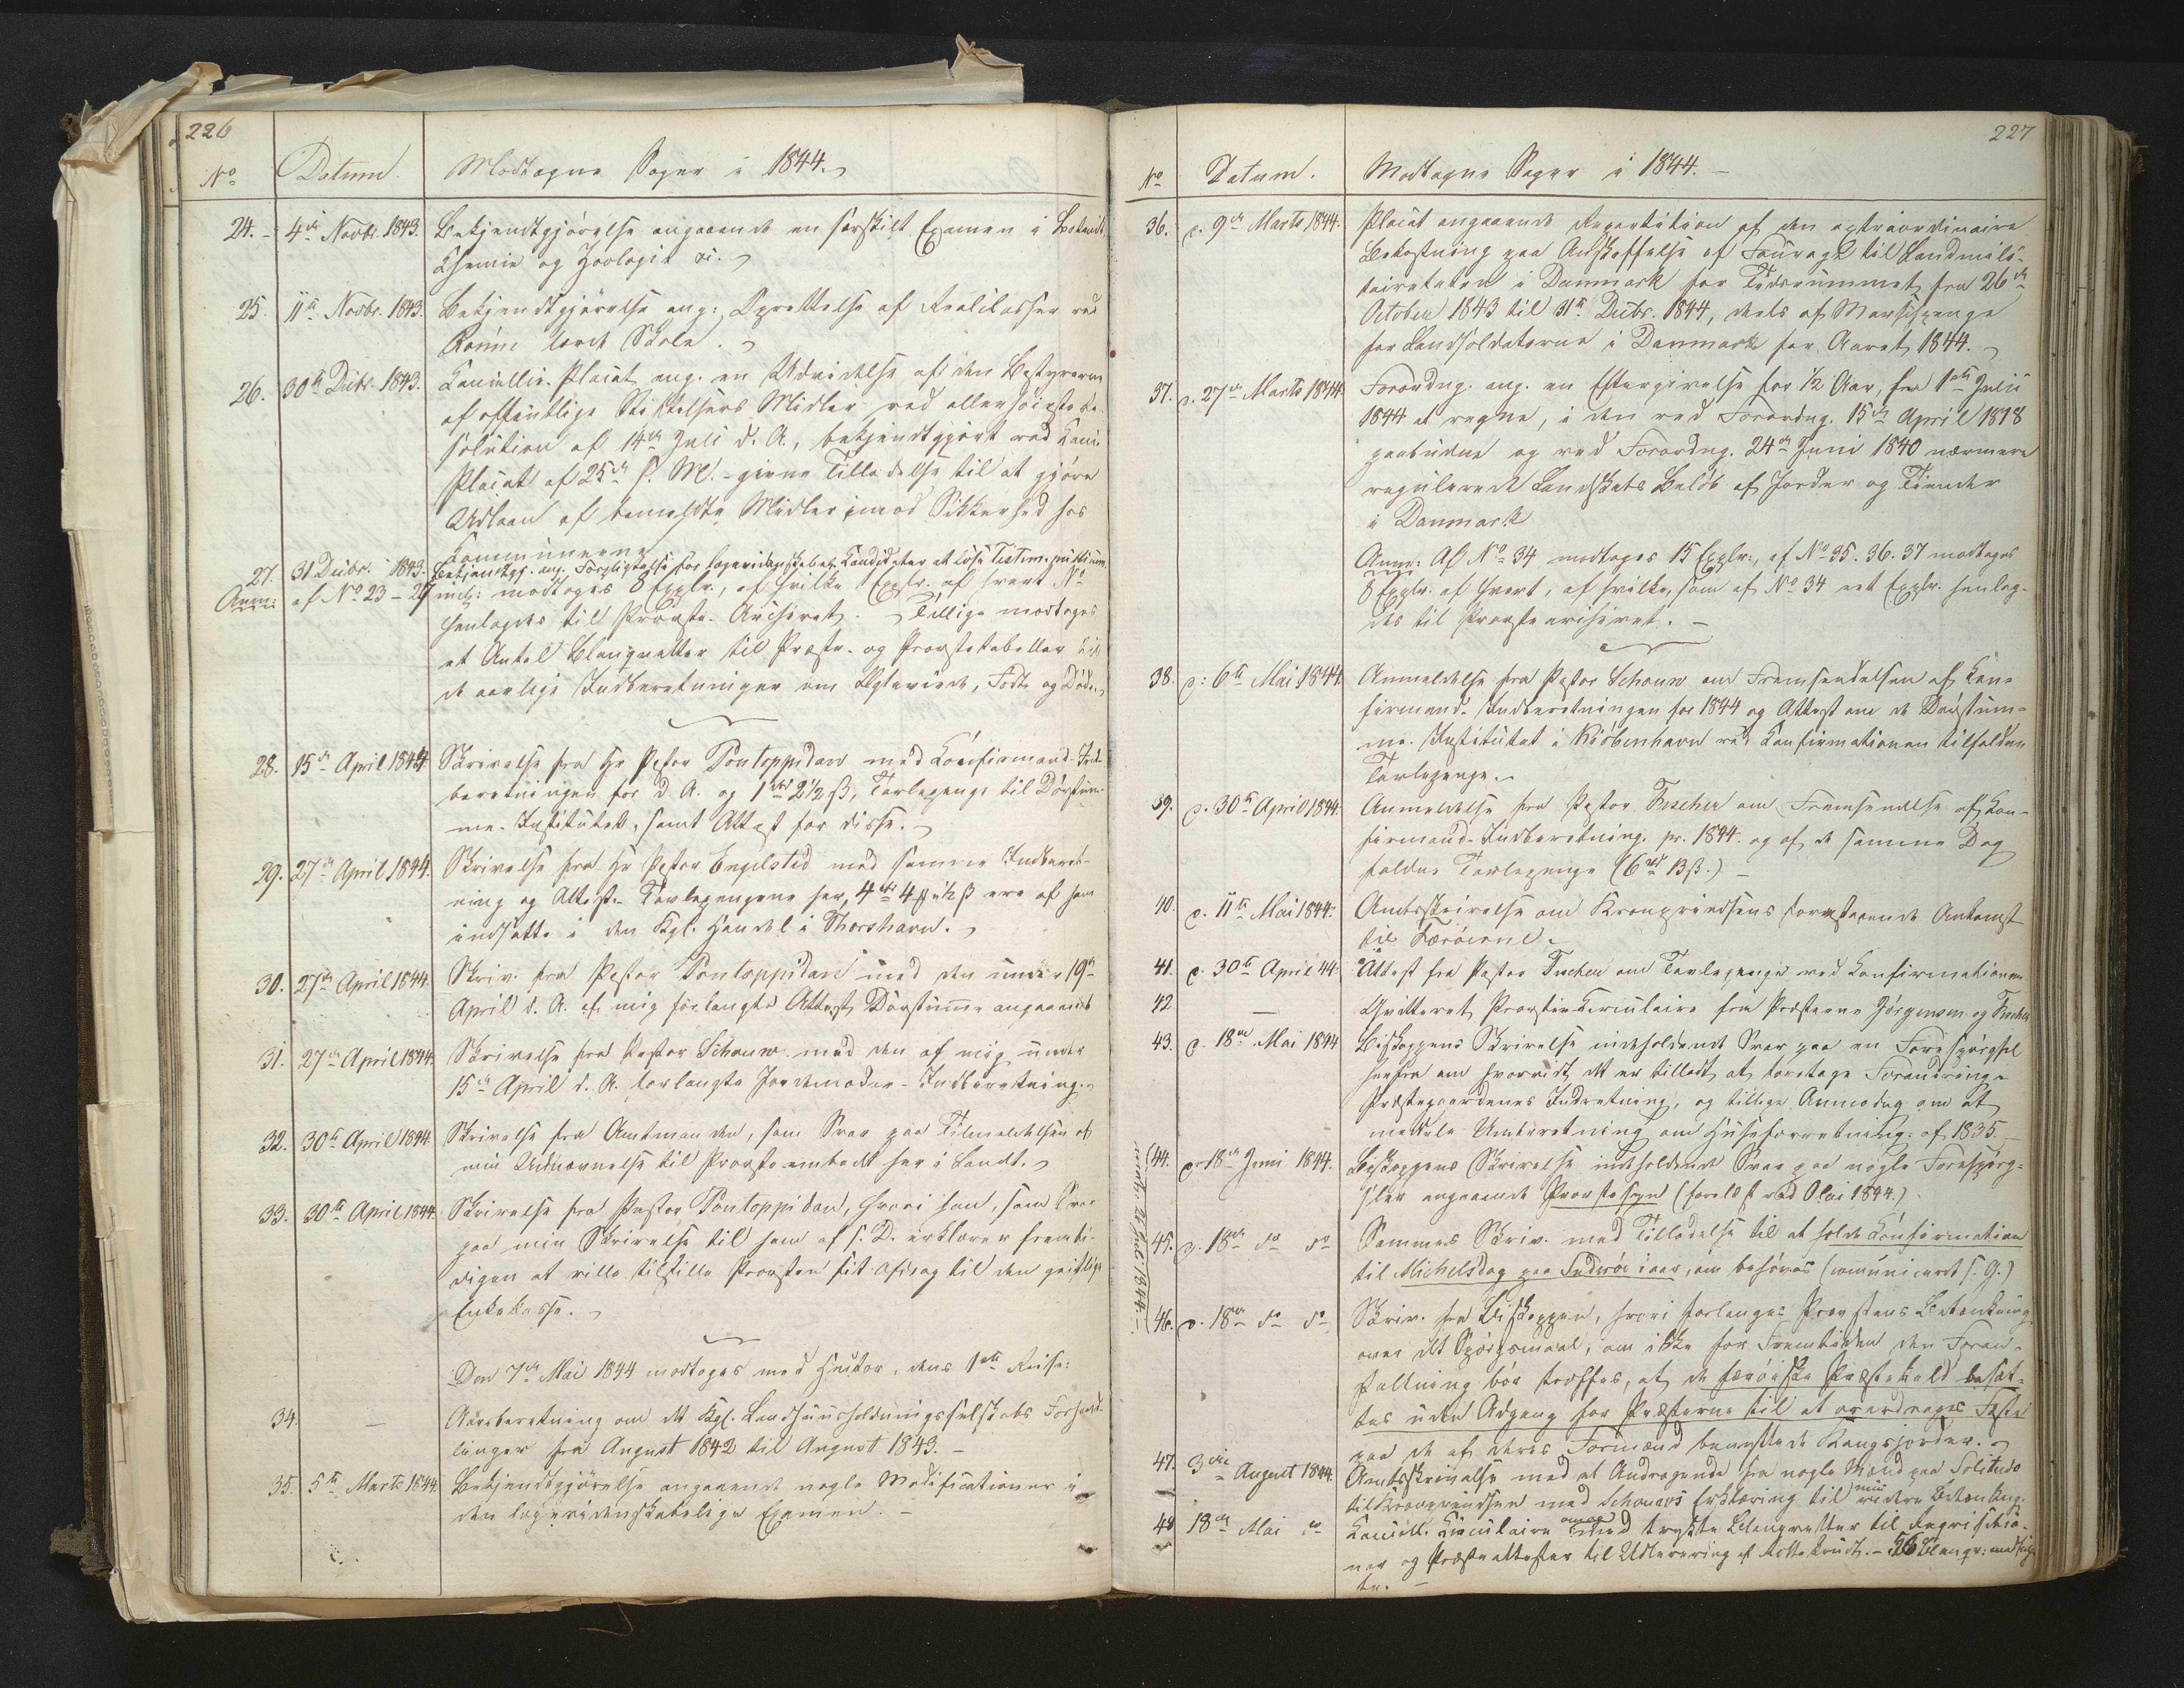 226
No Datum. Modtagne Sager i 1844.
24. 4de Novbr. 1843. Bekjendtgjörelse angaaende en særskilt Examen i Botanik,
Chemie og Zoologie &c.
25. 11te Novbr. 1843. Bekjendtgjörelse ang: Oprettelse af Realclasser ved
Rönne lærde Skole.
26. 30te Decbr. 1843. Cancellie-Placat ang. en Udvidelse af den Bestyrerne
af offentlige Stiftelsers Midler ved allerhöieste Re-
solution af 14de Juli d. A., bekjendtgjort ved Canc.
Placat af 25de s. M. - givne Tilladelse til at gjöre
Udlaan af bemeldte Midler imod Sikkerhed hos
Communerne
27. 31 Decbr. 1843. Bekjendtgj. ang. Forpligtelse for lægevidenskabel. Candidater at löse
Anm: af No 23 - 27 incl: modtoges 8 Explr., af hvilke 1 Explr. af hvert No
henlagdes til Provste-Archivet. - Tillige modtoges
et Antal Blanquetter til Præste- og Provstetabeller til
de aarlige Indberetninger om Ægteviede, Födte og Döde.
28. 15de April 1844 Skrivelse fra Hr Pastor Pontoppidan med Confirmand-Ind-
beretningen for d. A. og 1 rbd 2 1/2 ß, Tavlepenge til Dövstum-
me-Institutet, samt Attest for disse.
29. 27de April 1844. Skrivelse fra Hr Pastor Engelsted med samme Indberet-
ning og Attest. Tavlepengene her, 4 rbd 4 1/2 ß ere af ham
indsatte i den Kgl. Handel i Thorshavn.
30. 27de April 1844. Skriv. fra Pastor Pontoppidan med den under 19de
April d. A. af mig forlangte Attest Dövstumme angaaende
31. 27de April 1844. Skrivelse fra Pastor Schouw med den af mig under
15de April d. A. forlangte Jordemoder-Indberetning.
32. 30te April 1844. Skrivelse fra Amtmanden, som Svar paa Tilmeldelsen af
min Udnævnelse til Provsteembedet her i Landet.
33. 30te April 1844. Skrivelse fra Pastor Pontoppidan, hvori han, som Svar
paa min Skrivelse til ham af s. D. erklærer fremti-
digen at ville tilstille Provsten sit Afdrag til den geistlige
Enkekasse.
Den 7de Mai 1844 modtoges med Havfor, dens 1ste Reise:
34. — Aarsberetning om det Kgl. Landhuusholdningsselskabs Forhand-
linger fra August 1842 til August 1843. -
35. 5te Marts 1844. Bekjendtgjörelse angaaende nogle Modificationer i
den lægevidenskabelige Examen. -
227
No Datum. Modtagne Sager i 1844. -
36. d. 9de Marts 1844. Placat angaaende Repartition af den extraordinaire
Bekostning paa Anskaffelse af Fourage til Landmili-
tairetaten i Danmark for Tidsrummet fra 26de
October 1843 til 31te Decbr. 1844, deels af Marschpenge
for Landsoldaterne i Danmark for Aaret 1844.
37. d. 27de Marts 1844. Forordng. ang. en Eftergivelse for 1/2 Aar, fra 1ste Julii
1844 at regne, i den ved Forordng. 15de April 1818
paabudne og ved Forordng. 24de Juni 1840 nærmere
regulerede Landskats Belöb af Jorder og Tiender
i Danmark
Anm: Af No 34 modtoges 15 Explr., af No 35. 36. 37 modtoges
8 Explr. af hvert, af hvilke, som af No 34 eet Explr. henlag-
des til Provstearchivet. -
38. d: 6te Mai 1844. Anmeldelse fra Pastor Schouw om Fremsendelsen af Con-
firmand-Indberetningen for 1844 og Attest om de Dövstum-
me-Institutet i Kiöbenhavn ved Confirmationen tilfaldne
Tavlepenge.
39. d. 30te April 1844. Anmeldelse fra Pastor Fischer om Fremsendelse af Con-
firmand-Indberetning. pr. 1844. og af de samme Dag
faldne Tavlepenge (6 rbd 13 ß.) -
40. d. 11te Mai 1844. Amtsskrivelse om Kronprindsens forestaaende Ankomst
til Færöerne.
41. d. 30te April 44. Attest fra Pastor Fischer om Tavlepenge ved Confirmationen
42 — Qvitteret Provstie-Circulaire fra Præsterne Jörgensen og Fischer
43. d. 18de Mai 1844 Biskoppens Skrivelse indeholdende Svar paa en Forespörgsel
herfra om hvorvidt det er tilladt at foretage Forandring i
Præstegaardenes Indretning, og tillige Anmodng om at
meddele Underretning om Huseforretning. af 1835. -
44. d. 18de Juni 1844. Biskoppens Skrivelse indeholdende Svar paa nogle Forespörg-
sler angaaende Provstesyn (forelæst ved Olai 1844.)
45. d. 18de do do Sammes Skriv. med Tilladelse til at holde Confirmation
til Michelsdag paa Suderö iaar, om behöves (communiceret s. G.)
46. d. 18de do do Skriv. fra Biskoppen, hvori forlanges Provstens Betænkning
over det Spörgsmaal, om ikke for Fremtiden den Foran-
staltning bör træffes, at de færöiske Præstekald besæt-
tes uden Adgang for Præsterne til at overdrages Fæste
paa de af deres Formænd benyttede Kongsjorder.
47. 3die August 1844. Amtsskrivelse med et Andragende fra nogle Mænd paa
til Kronprindsen med Schouws Erklæring til min videre Betænkng.
48 18de Mai do Cancell. Circulaire med trykte Blanquetter til
ner og Præsteattester til Udlevering af - 26 Blanqv: medfulg-
te. -